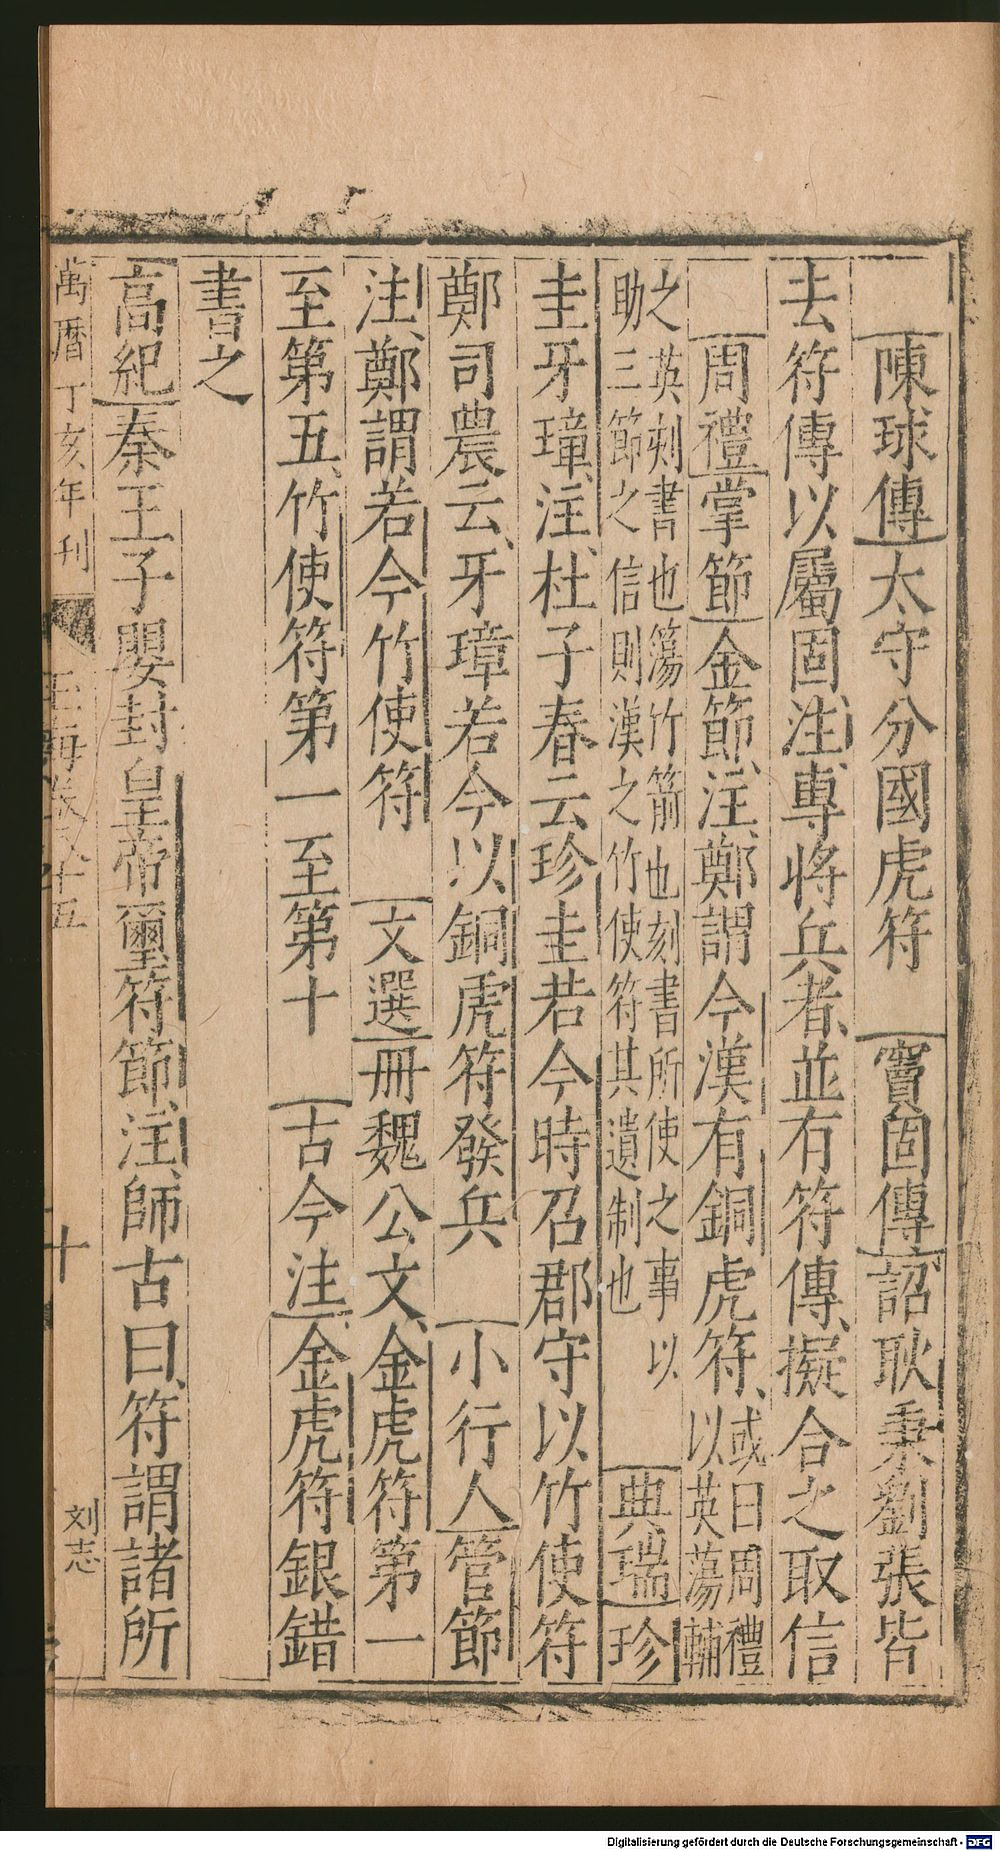 陳球傳太守分國虎符　竇固傳詔耿秉劉張皆
去符傳以屬固注專將兵者並有符傳擬合之取信
周禮掌節金節注鄭謂今漢有銅虎符或曰周禮
以英蕩輔
之英刻書也簜竹箭也刻書所使之事以
助三節之信則漢之竹使符其遺制也
典瑞珍
圭牙璋注杜子春云珍圭若今時召郡守以竹使符
鄭司農云牙璋若今以銅虎符發兵　小行人管節
注鄭謂若今竹使符　文選冊魏公文金虎符第一
至第五竹使符第一至第十　古今注金虎符銀錯
書之
高紀秦王子嬰封皇帝璽符節注師古曰符謂諸所
萬曆丁亥年刊
玉海卷八十五
十
刘志
Digitalisierung gefördert durch die Deutsche Forschungsgemeinschaft - DFG